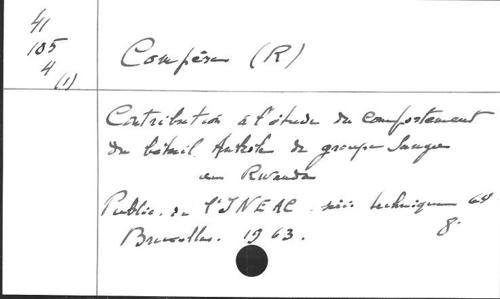 41
105
4
(1)
Compère (R)
Contribution à l'étude du comportement
du bétail Ankole du groupe Sanga
au Rwanda
Public. de l'INEAC. série technique 64
Bruxelles. 1963. 8.